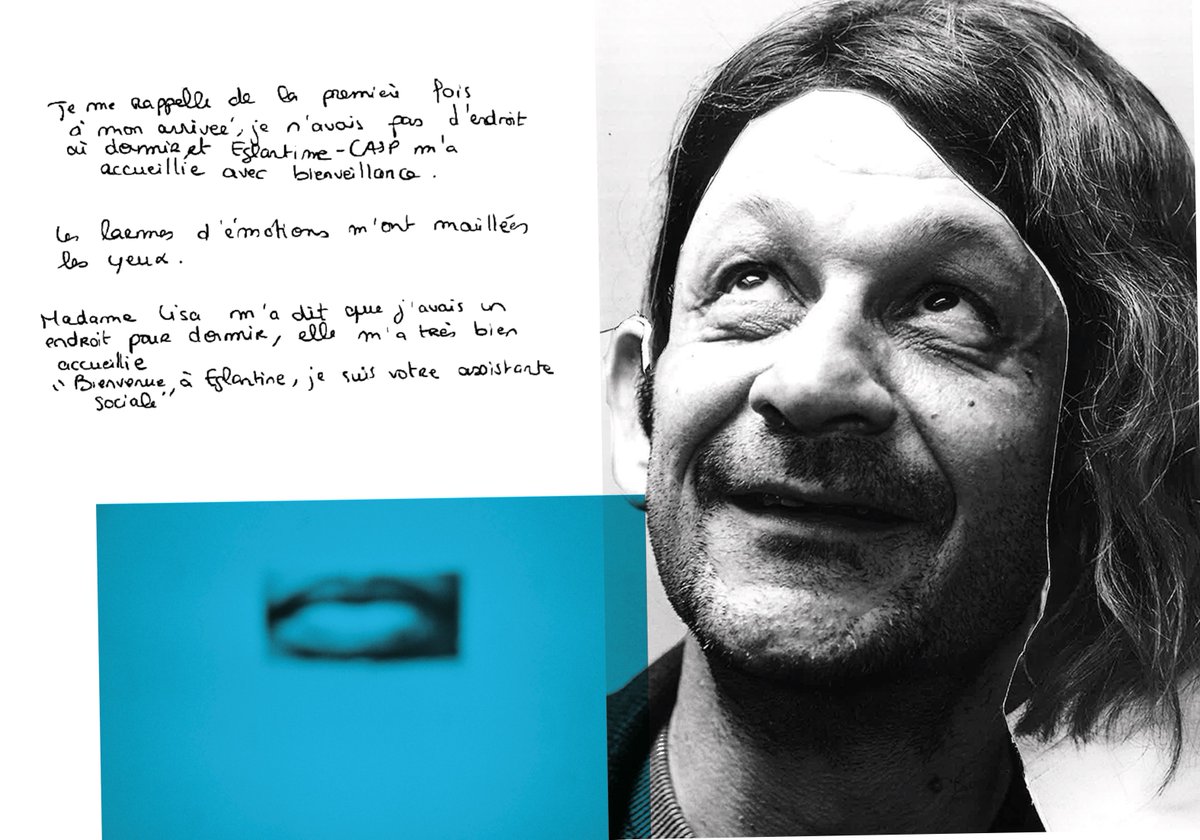 Je me rappelle de la premiere fois
à mon arriveé, je n'avais pas d'endroit
où dormir et Eglantine-CASP m'a
accueillie avec bienveillance.
Les larmes d'émotions m'ont maillées
les yeux.
Madame Lisa m'a dit que j'avais un
endroit pour dormir, elle m'a très bien
accueillie
"Bienvenue, à Eglantine, je suis votre assistante
sociale"